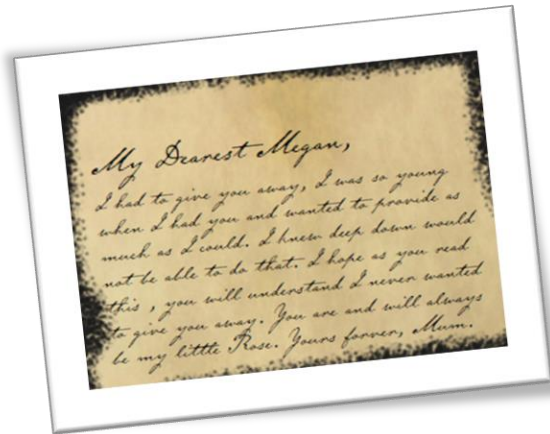 My Dearest Megan,
I had to give you away, I was so young
when I had you and wanted to provide as
much as I could. I knew deep down would
not be able to do that. I hope as you read
this , you will understand I never wanted
to give you away. You are and will always
be my little Rose. Yours forver, Mum.